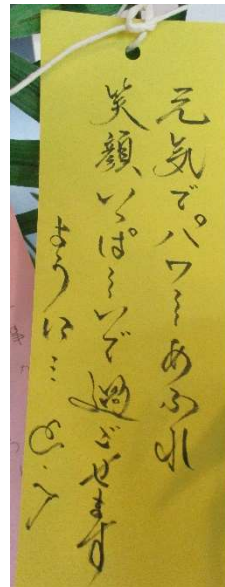 元気で。パワーあふれ
笑顔いっぱーいで過ごせます
ように…